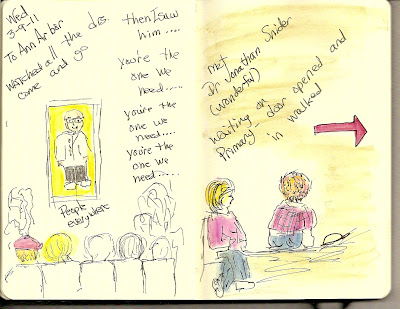 Wed
3-9-11
To Ann Arbor
watched all the drs.
come and go
then I saw
him....
you're the
one we
need.....
you're the
one we
need....
you're the
one we
need....
People
everywhere
met
Dr Jonathan Snider
(wonderful)
waiting on
Primary - door opened and
in walked